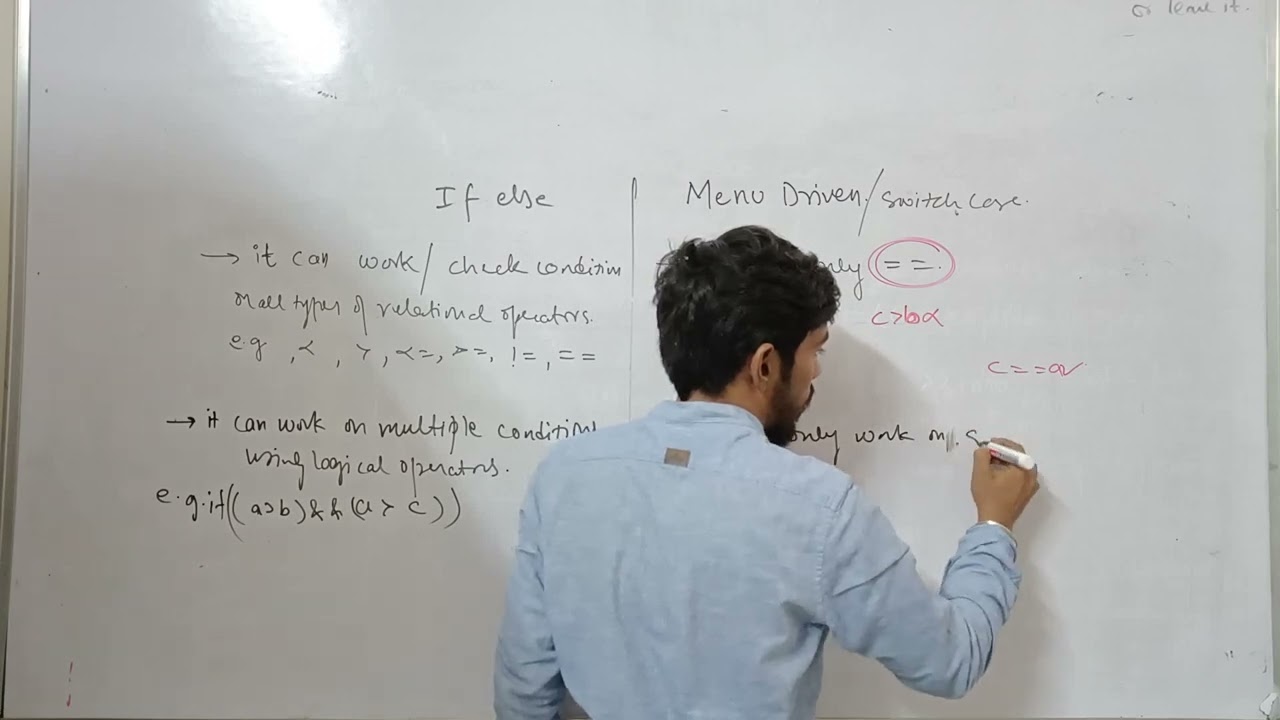 or leave it.
If else
Menu Driven/switch case.
→ it can work/check condition
on all types of relational operators.
e.g , < , > , <=, >=, !=, ==
only ==.
c>ba
c==a
→ it can work on multiple condition
using logical operators.
e.g. if((a>b)&&(a>c))
only work on